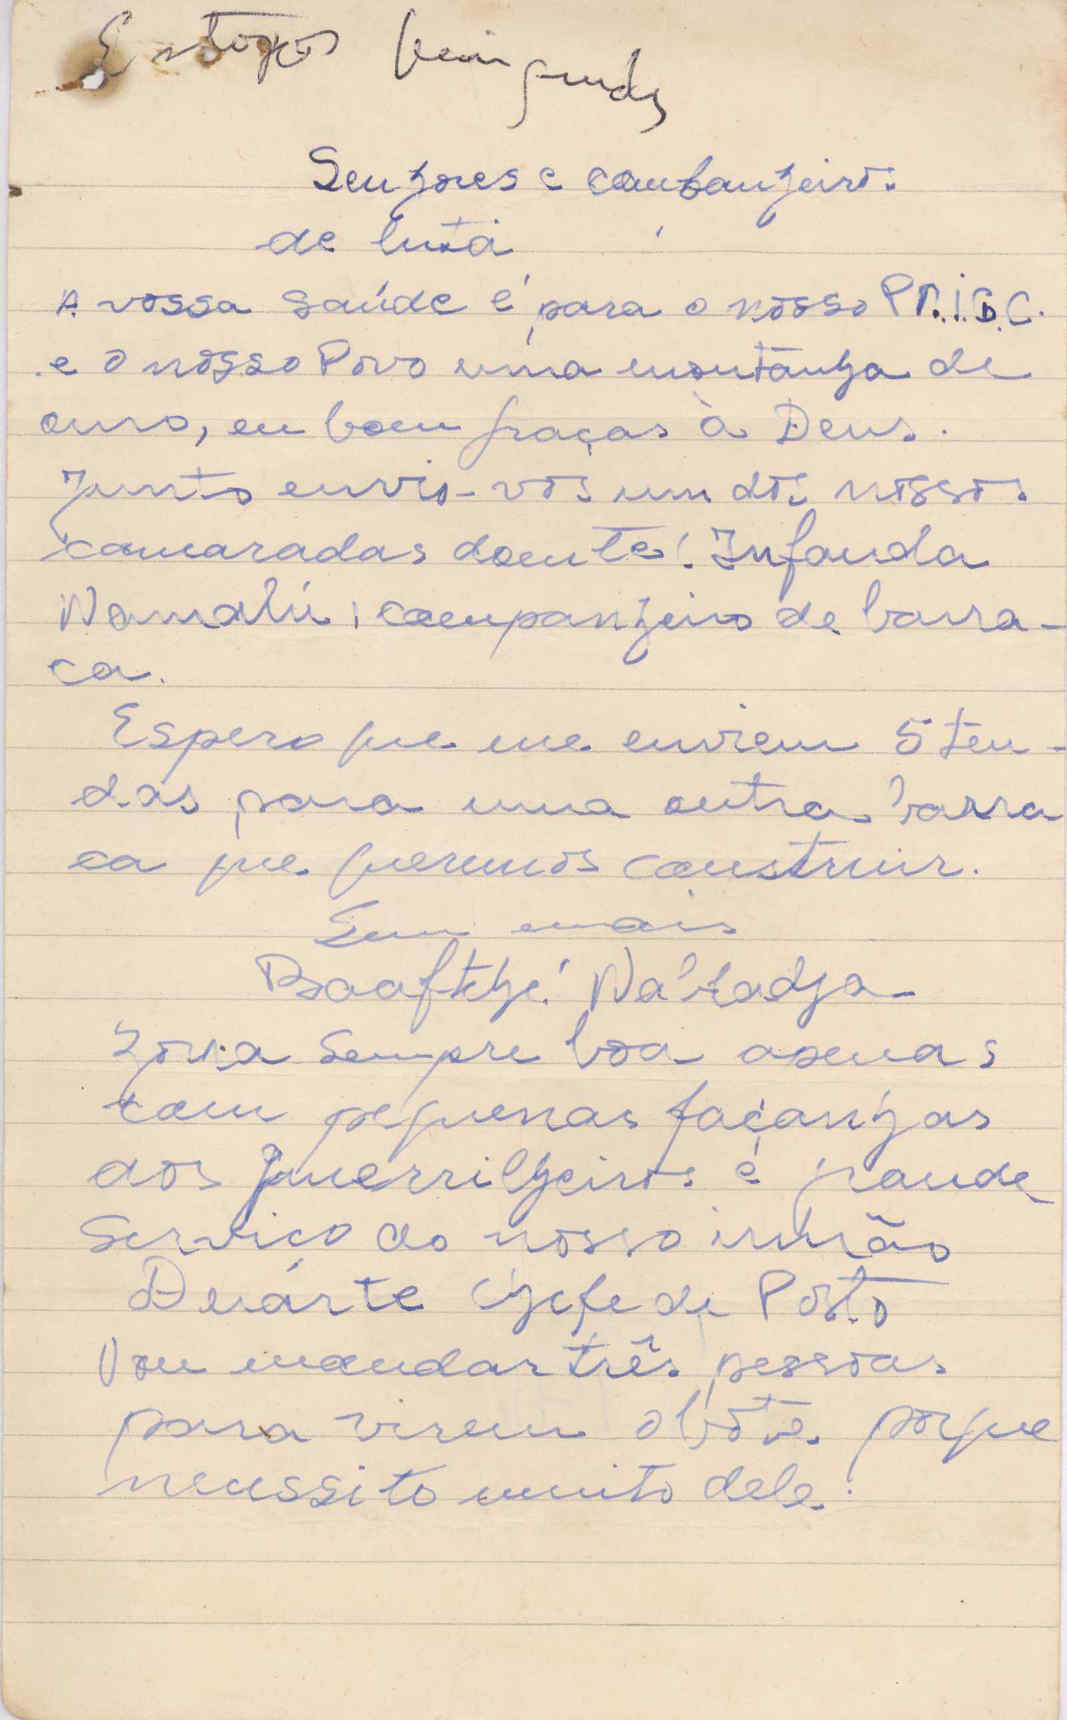 Senhores e companheiros
de luta
A vossa saúde é para o nosso P.A.I.G.C.
e o nosso Povo uma montanha de
ouro, eu bem graças à Deus.
Junto envio-vos um dos nossos
camaradas doente! Infanda
Namdlú, companheiro de barra-
ca.
Espero que me enviem 5 ten-
das para uma outra barra
ca que queremos construir.
Sem mais
Na
Zona sempre boa apenas
com pequenas façanhas
dos guerrilheiros é grande
Serviço do nosso irmão
Duárte chefe de Posto
Vou mandar três pessoas
para virem o bóte porque
necessito muito dele.